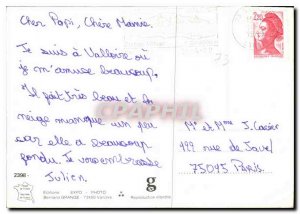 Cher Papi, Chère Mamie,
Je suis à Valloire où
je m'amuse beaucoup.
Il fait très beau et la
neige manque un peu
car elle a beaucoup
fondu. Je vous embrasse
Julien.
Mr et Mme J. Casier
199 rue de Javel
75015 Paris
2398
Editions EXPO - PHOTO
Bernard GRANGE - 73450 Valloire
g
Reproduction interdite
2,20